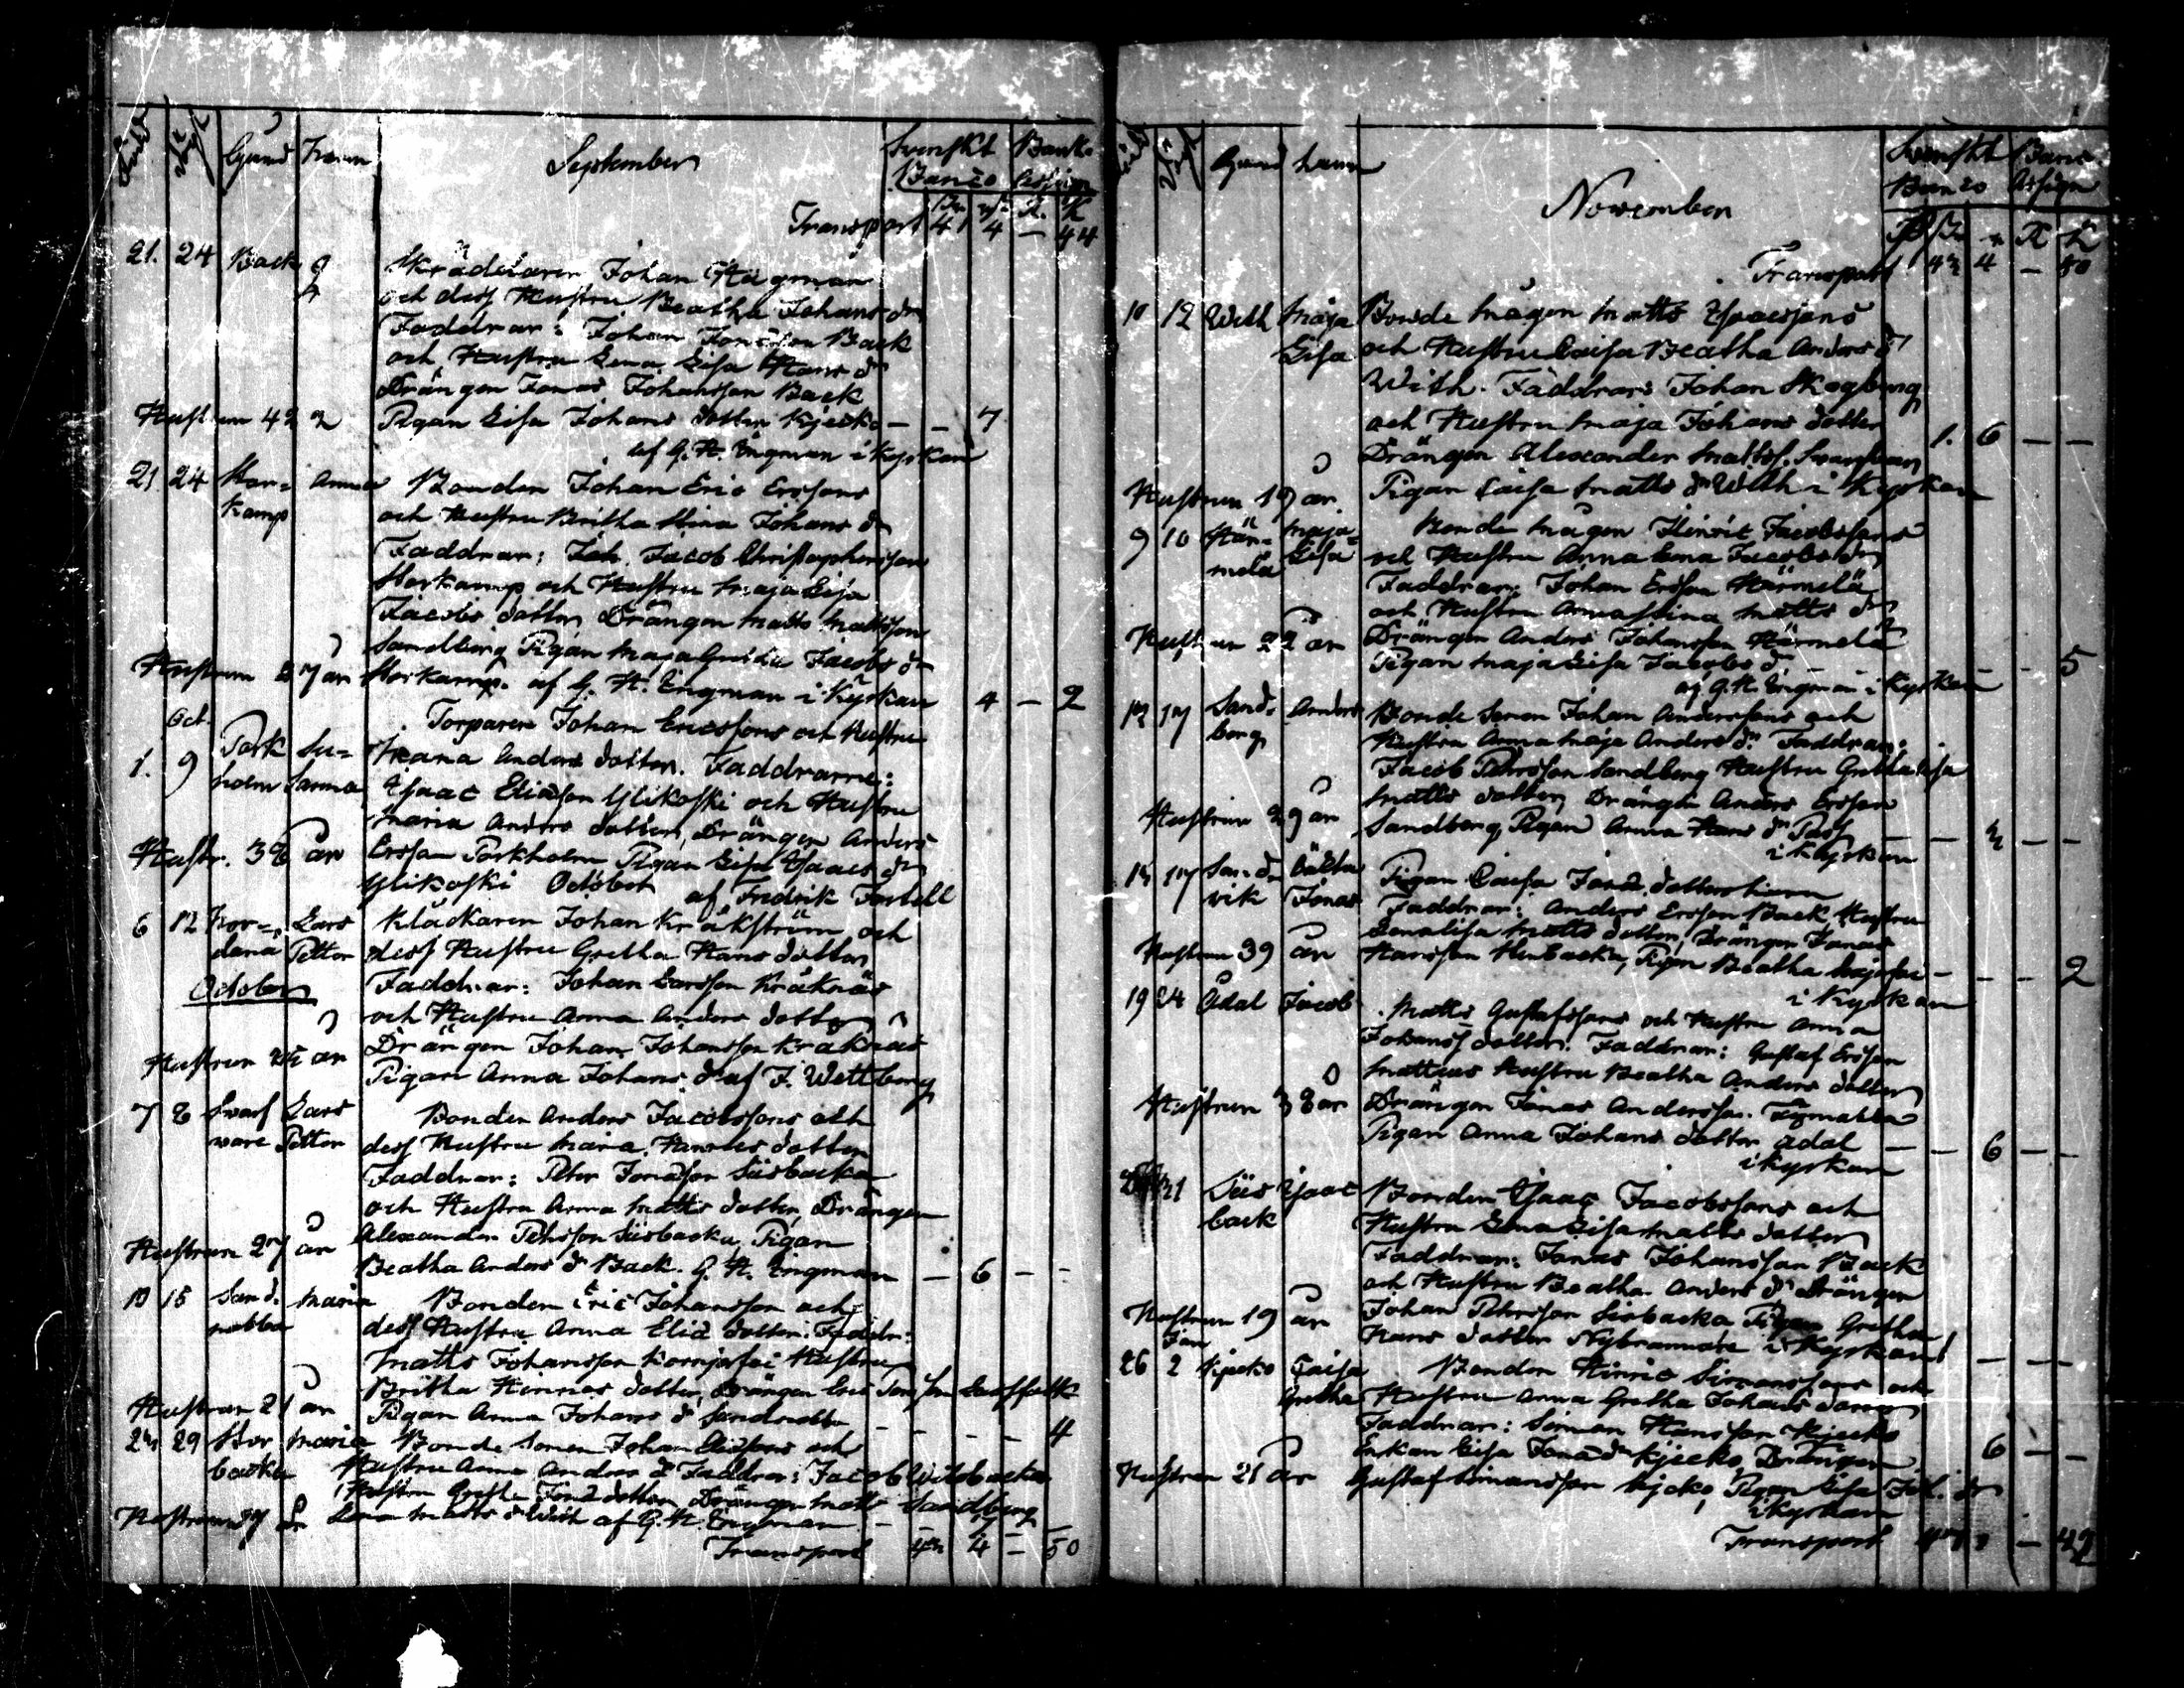 Gård Namn September Svenskt Banco Bank assign
Transport 41 4 — 44
21. 24 Back Skräddaren Johan Hägman
och dess Hustru Beatha Johans dr
Faddrar: Johan Jonasson Back
och Hustru Lena Lisa Hans dr
Drängen Jonas Johansson Back
Hustrun 42 Pigan Lisa Johans dotter Kjecko — — 7
af G. H. Engman i Kyrkan
21 24 Stor= Anna Bonden Johan Eric Erssons
kamp och Hustru Britha Stina Johans dr
Faddrar: Joh. Jacob Christophersson
Storkamp och Hustru Maja Lisa
Jacobs dotter Drängen Matts Mattsson
Sandberg Pigan Maja Greta Jacobs dr
Hustrun 27 år Storkamp. af G. H. Engman i Kyrkan 4 — 2
Oct. Torparen Johan Ericssons och Hustru
1. 9 Park Su= Anders dotter. Faddrarne:
holm sanna Isaac Eliasson Ylikoski och Hustru
Maria Anders dotter, Drängen Anders
Hustr. 38 år Ersson Parkholm Pigan Lisa Isaacs dr
Ylikoski October af Fredrik Forsell
6 12 Lars Kläckaren Johan Kräkström och
Petter dess Hustru Gretha Hans dotter
October Faddrar: Johan Larsson Kråknäs
och Hustru Anna Anders dotter
Hustrun år Drängen Johan Johansson Kråknäs
Pigan Anna Johans dr af F. Wettberg
7 8 Svarf Lars Bonden Anders Jacobssons och
vare Petter dess Hustru Maria dotter
Faddrar: Peter Jonasson Siisbacka
och Hustru Anna Matts dotter, Drängen
Alexander Pehrsson Siisbacka, Pigan
Hustrun 27 år Beatha Anders dr Back. G. H. Engman — 6 — —
10 15 Sand. Maria Bonden Eric Johansson och
nabba dess Hustru Anna Elia dotter. Faddr:
Matts Johansson Kornjafvi Hustru
Britha Hinries dotter, Drängen Eric
Hustrun 21 år Pigan Anna Johans dr Sandnabba — — — — 4
29 Stor Maria Bonde Sonen Johan Eliassons och
backa Hustru Anna Anders dr Faddrar: Jacob
Hustru Gretha Jonas dotter, Drängen Matts Sandberg
Hustrun 27 år Lena Matts dr With af G. H. Engman — —
Transport 4 — 50
Gård Namn November Svenskt Banco Banco Assign
Transport 4 — 50
10 12 With Maja Bonde Mågen Matts Isaacssons
Lisa och Hustru Caisa Beatha Anders dr
With. Faddrar: Johan Skogberg
och Hustru Maja Johans dotter 1. 6 — —
Drängen Alexander Mattss.
Hustrun 19 år. Pigan Caisa Matts dr With i Kyrkan
9 10 Här= Maja= Bonde Mågen Hinric Jacobssons
melä Lisa och Hustru Anna Lena Jacobs dr
Faddrar: Johan Ersson Härmelä
och Hustru Anna Stina Matts dr
Hustrun 22 år Drängen Anders Johansson Härmelä
Pigan Maja Lisa Jacobs dr — — 5
af G. H. Engman i Kyrkan
17 Sand= Anders Bonde Sonen Johan Anderssons och
berg Hustru Anna Maja Anders dr Faddrar:
Jacob Pehrsson Sandberg Hustru Greta Lisa
Matts dotter, Drängen Anders Ersson
Hustrun 29 år Sandberg, Pigan Anna Hans dr — —
i Kyrkan
17 Sand Oäkta Pigan Caisa Jonas dotters
vik Jonas Faddrar: Anders Ersson Back Hustru
Lenalisa Matts dotter, Drängen Jonas
Hustrun 39 år Hansson Pigan Beatha — — — 2
i Kyrkan
19 24 Ådal Jacob Matts Gustafssons och Hustru Anna
Johans dotter. Faddrar: Gustaf Ersson
Matteus Hustru Beatha Anders dotter
Hustrun 38 år Drängen Jonas Andersson.
Pigan Anna Johans dotter Ådal — — 6 — —
i kyrkan
31 Siis Isaac Bonden Isaac Jacobssons och
back Hustru Lena Lisa Matts dotter
Faddrar: Jonas Johansson Back
och Hustru Beatha Anders dr Drängen
Hustrun 19 år Johan Pehrsson Siisbacka Pigan Gretha
Jan Hans dotter i Kyrkan — — —
26 2 Kjecko Caisa Bonden Hinric Simonssons och
Gretha Hustru Anna Gretha Johans
Faddrar: Simon Hansson Kjecko 6 — —
Enkan Lisa Jonas dr Kjecko, Drängen
Hustrun 21 år Gustaf Simonsson Kjecko, Pigan Lisa Joh. dr
i kyrkan
Transport